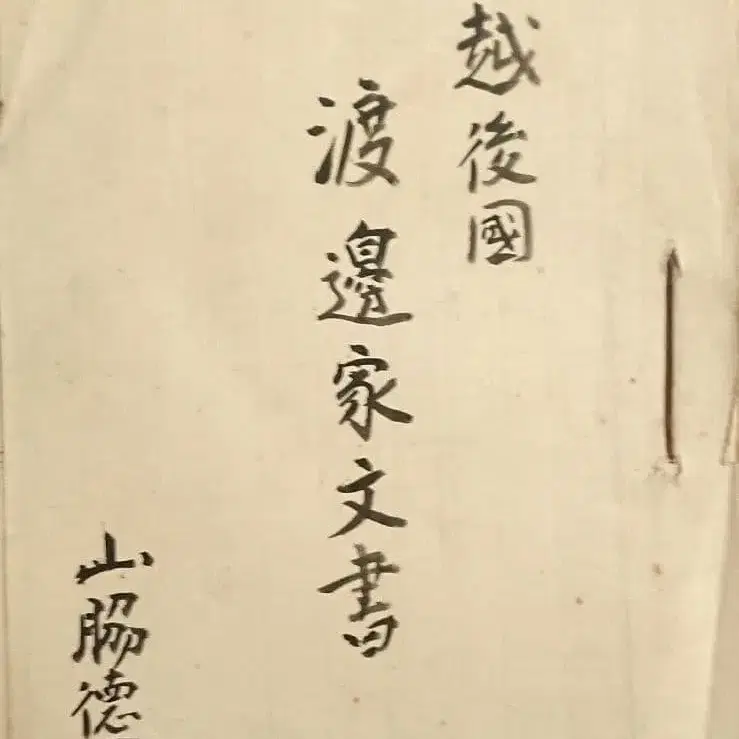 越後國
渡邊家文書
山脇徳